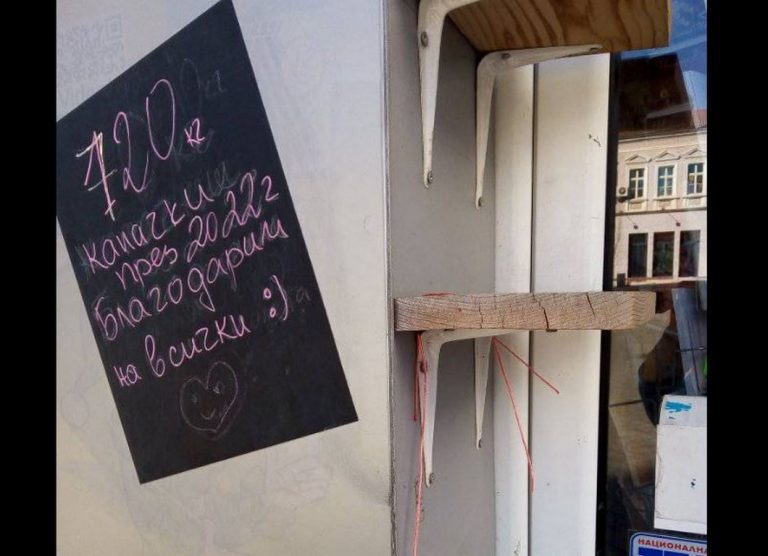 720 кг
капачки
през 2022 г
благодарим
на всички :)
НАЦИОНАЛНА